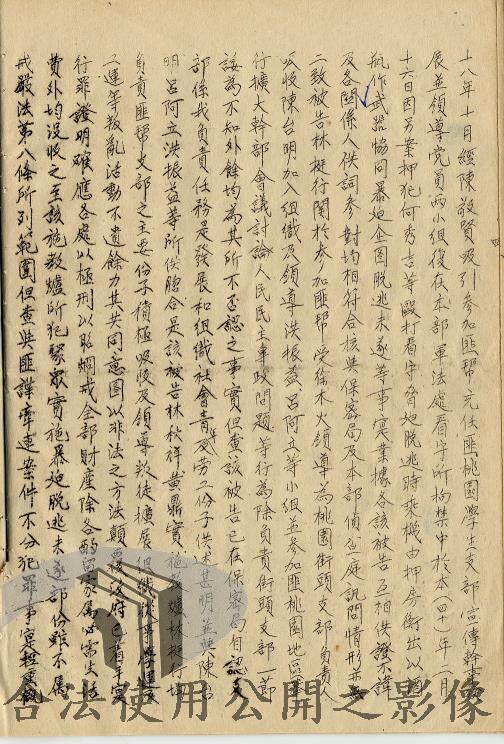 十八年十月經陳敬賢吸引參加匪幫充任匪桃園學生支部宣傳幹事
展並領導党員兩小組復在本部軍法處看守所拘禁中於本(四十)年二月
十六日因另案押犯何秀吉等毆打看守脫逃時乘機由押房衝出以酒
瓶作武器協同暴力企圖脫逃未遂等事實業據各該被告互相供證不諱
及各關係人供詞參對均相符合核與保密局及本部偵查庭訊問情形亦無
二致被告林挺行關於參加匪幫受徐木火領導為桃園街頭支部負責人
吸收陳台明加入組織及領導洪振益呂阿立等小組並參加匪桃園地區
行擴大幹部會議討論人民民主專政問題等行為除負責街頭支部一節
諉為不知外餘均為其所不否認之事實但查該被告已在保密局自認
部係我負責任務是發展和組織社會青年及勞工份子供述甚明並與陳台
明呂阿立洪振益等所供脗合是該被告林秋祥黃鼎實施教爐林挺行均
負責匪幫支部之主要份子積極吸收及領導叛徒擴展組織從事學運
工運等叛亂活動不遺餘力其共同意圖以非法之方法顛覆政府已著手實
行罪證明確應各處以極刑以昭炯戒全部財產除各酌留家屬必需生活
費外均沒收之至該施教爐所犯聚眾實施暴力脫逃未遂部份雖不屬
戒嚴法第八條所列範圍但查與匪諜牽連案件不分犯罪事實輕重
合法使用公開之影像